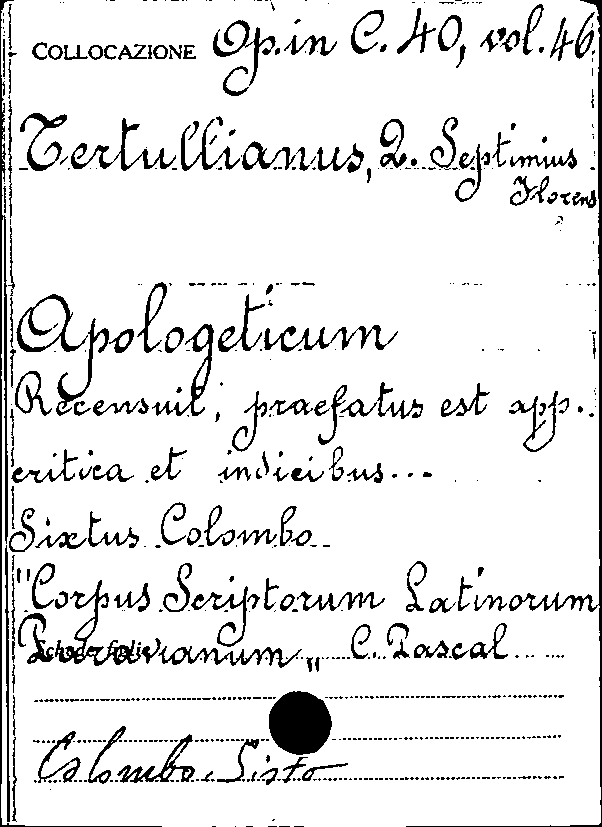 COLLOCAZIONE Op. in C. 40, vol. 46
Tertullianus, Q. Septimius
Florens
Apologeticum
Recensuit, praefatus est app.
critica et indicibus...
Sixtus Colombo
"Corpus Scriptorum Latinorum
Paravianum„ C. Pascal
Schede figlie
Colombo, Sisto